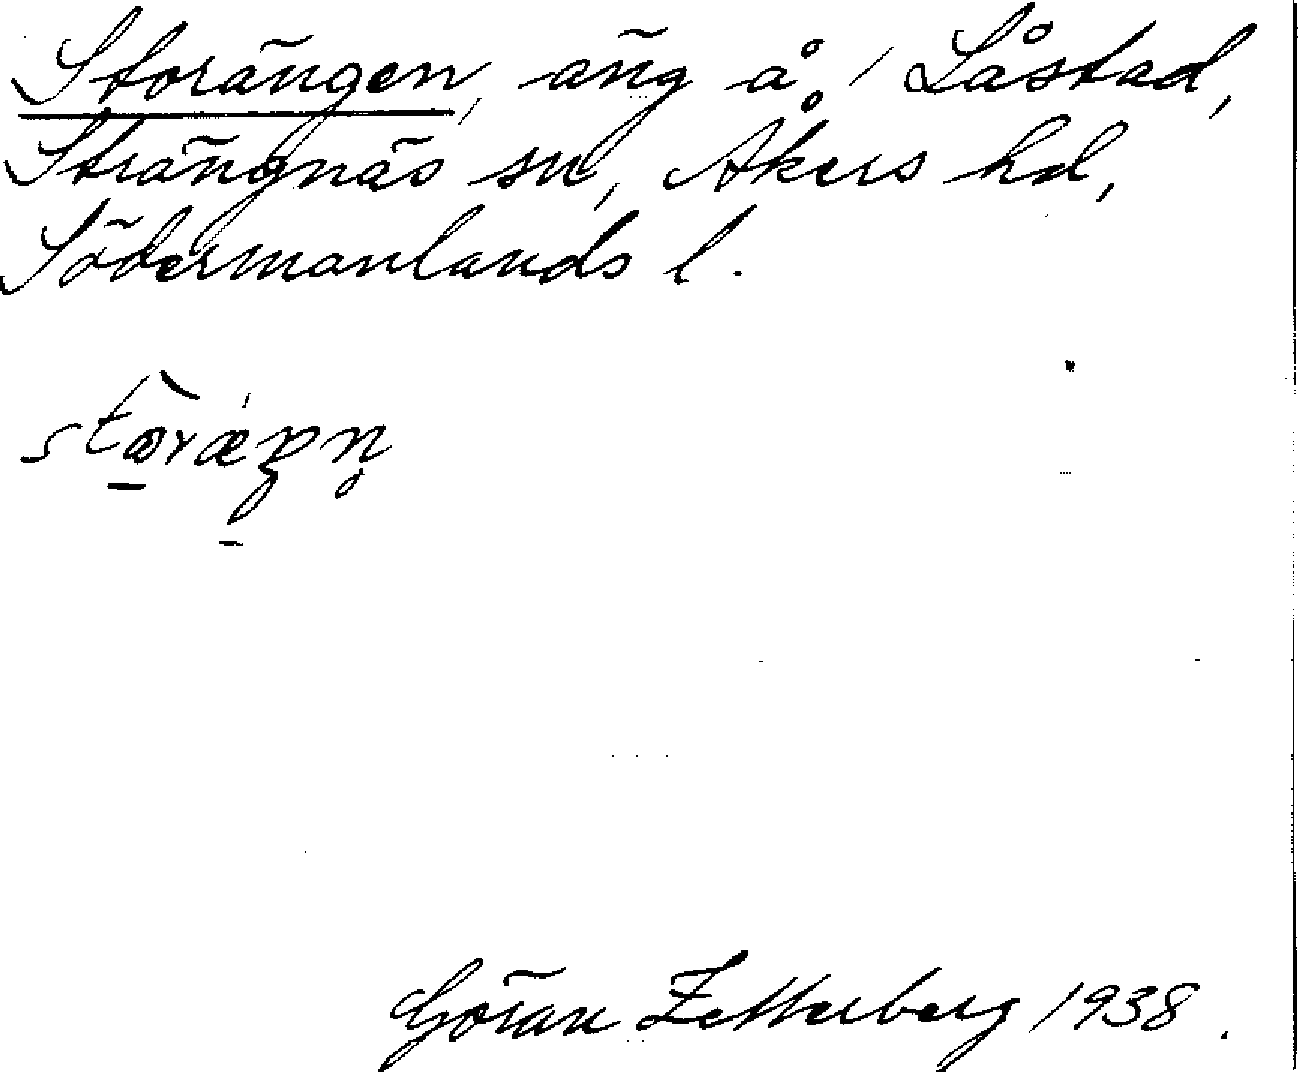 Storängen, äng å / Låstad,
Strängnäs sn, Åkers hd,
Södermanlands l.
Göran Zetterberg 1938.